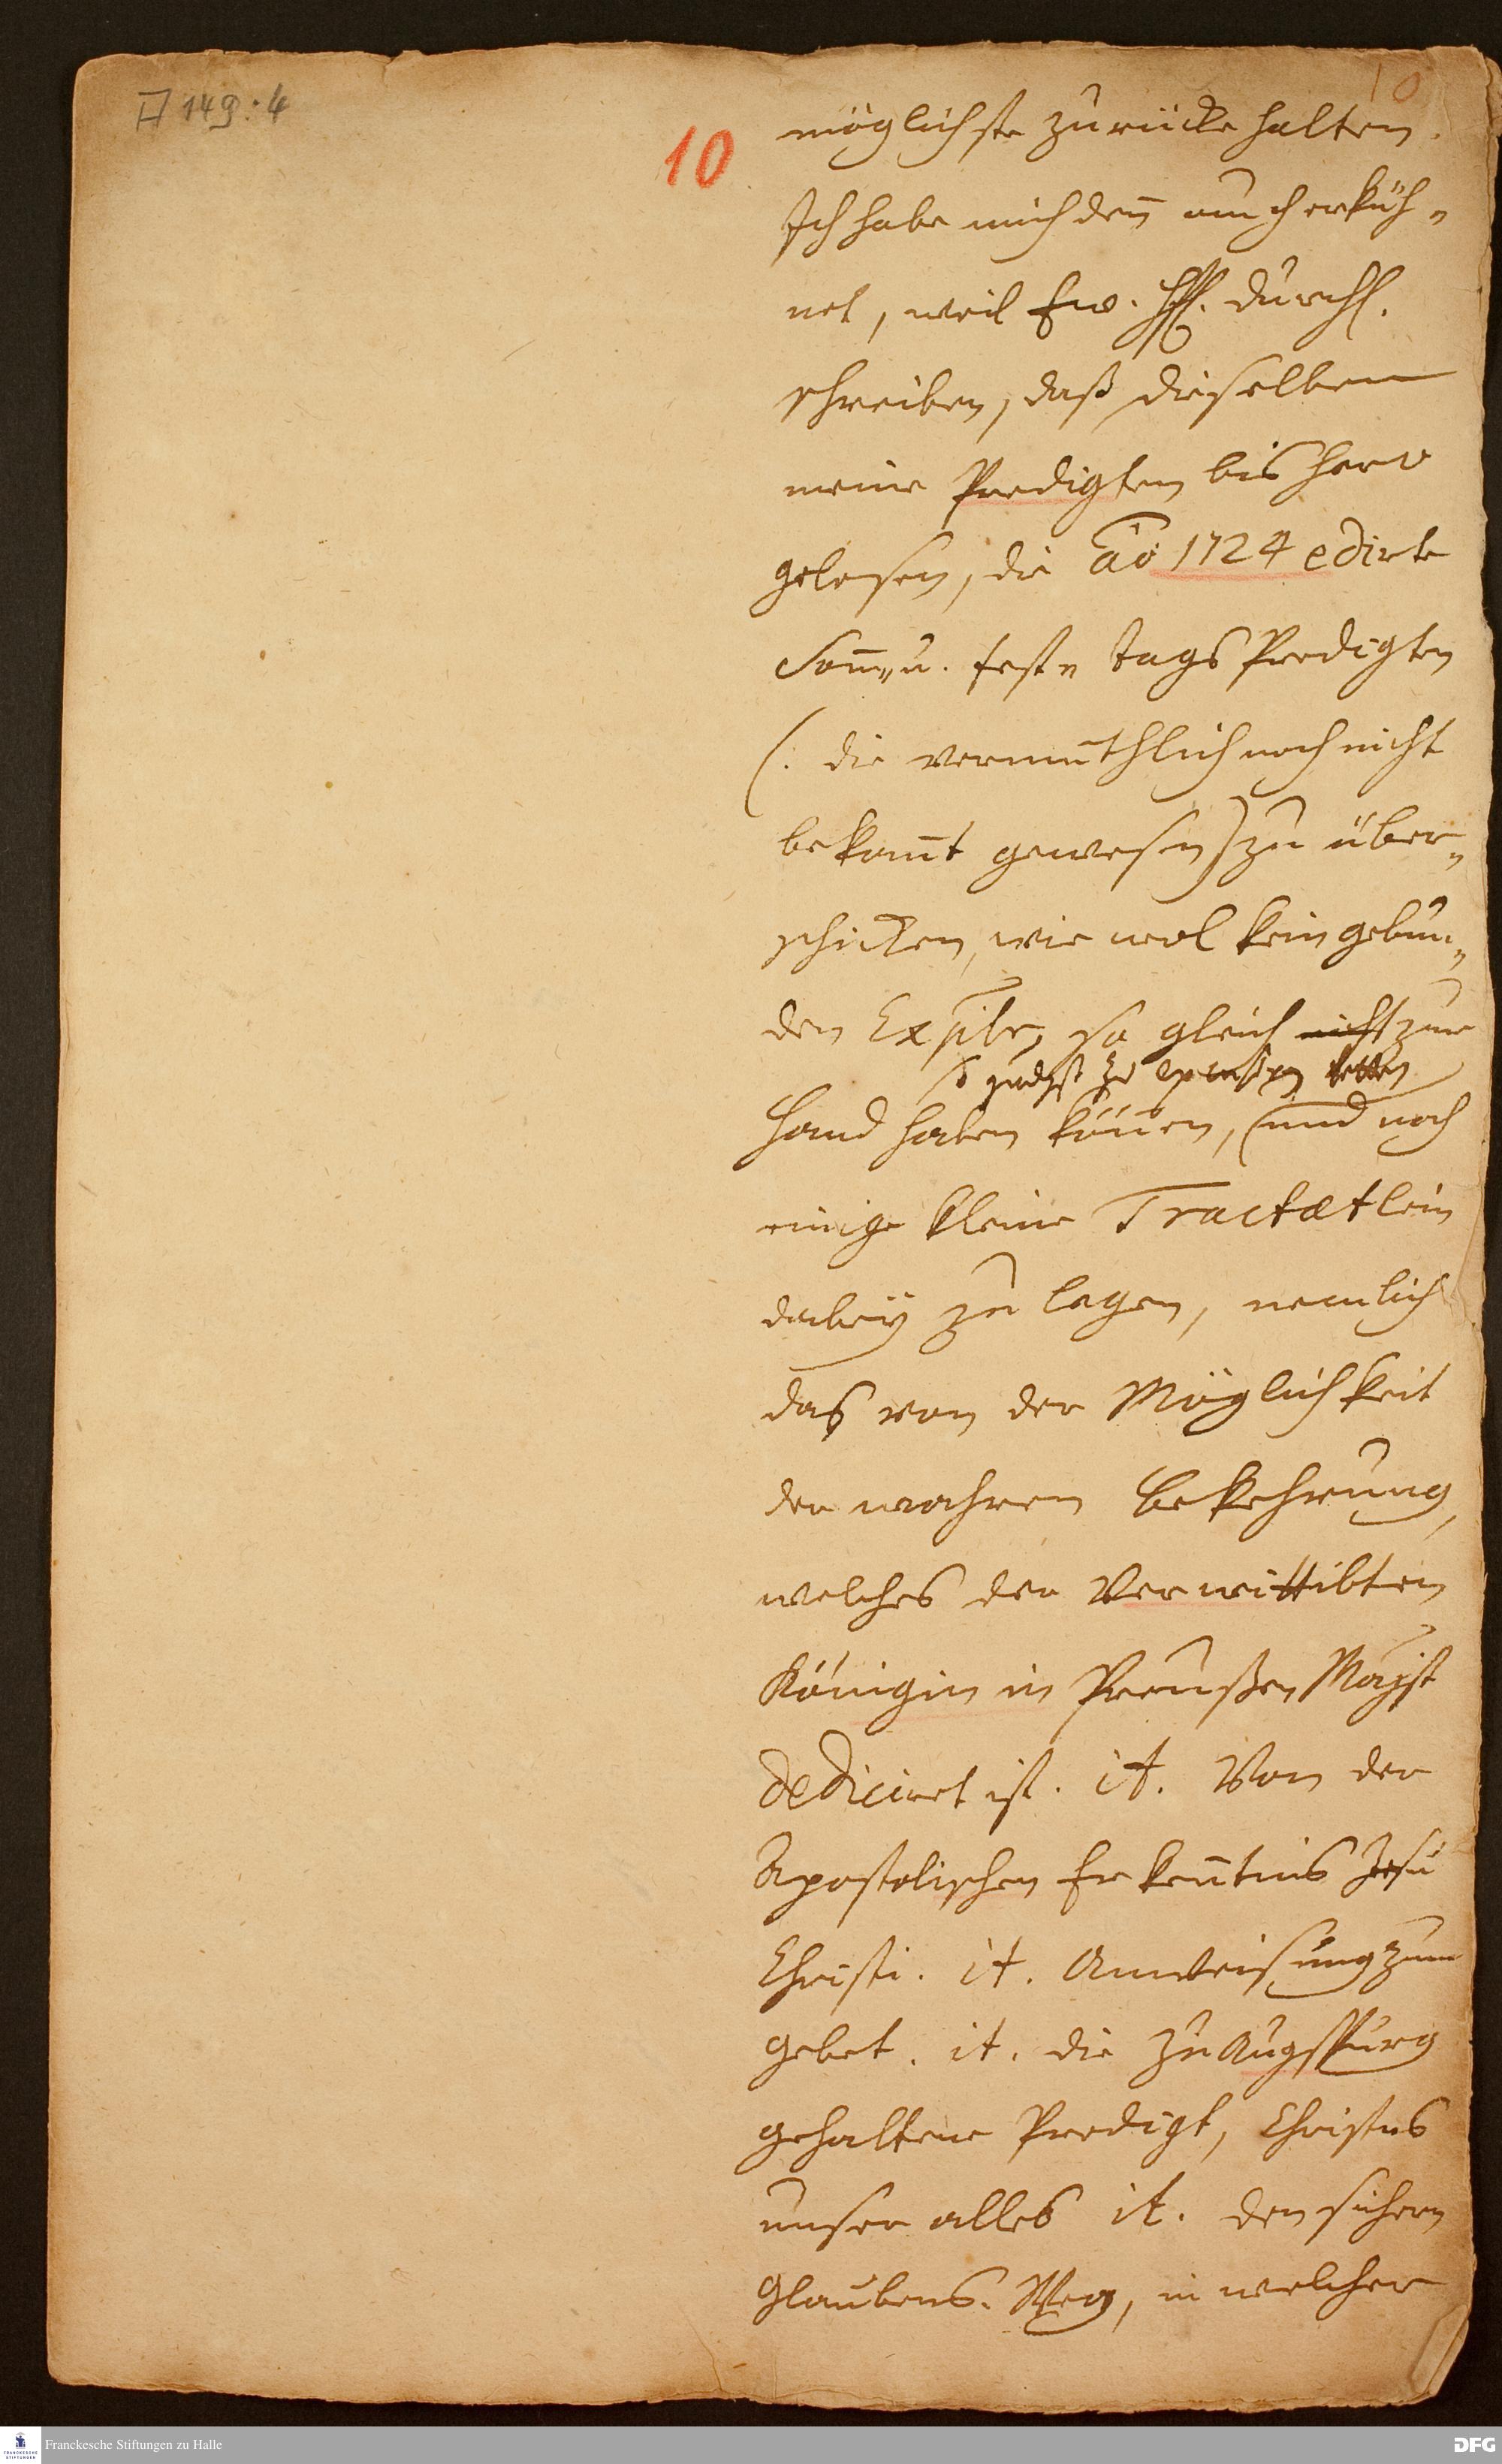 A 149:4
10
10
möglichste zurücke halten.
Ich habe mich deñ auch erküh-
net, weil Ew. Hfl. Durchl.
schreiben, daß dieselben
meine Predigten bishero
gelesen, die Aõ 1724 edirte
Soñ- u. Fest- tags Predigten
(: die vermuthlich noch nicht
bekañt gewesen) zu über-
schicken, wie wol kein gebun-
den Explr, so gleich nicht zur
Hand haben köñen, (und noch
einige kleine Tractætlein
dabey zu legen, nemlich
das von der Möglichkeit
der wahren Bekehrung,
welches der Verwittibten
Königin in Preußen Majst
dediciret ist. it. Von der
Apostolischen Erkeñtnis Jesu
Christi. it. Anweisung zum
Gebet. it. die zu Augspurg
gehaltene Predigt, Christus
unser alles it. den sichern
Glaubens-Weg, in welcher
Franckesche Stiftungen zu Halle
DFG